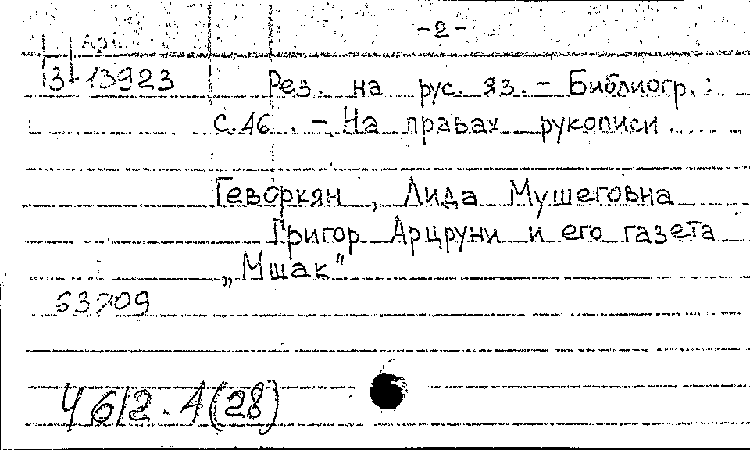 -2-
Арм.
З-13923
Рез. на рус. яз. - Библиогр.:
с.46. - На правах рукописи.
Геворкян, Лида Мушеговна
Григор Арцруни и его газета
„Мшак"
53709
Ч612.4(28)